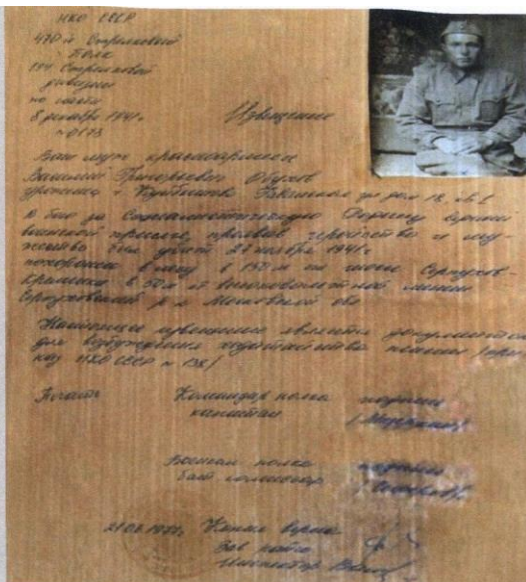 НКО СССР
470 й Стрелковый
Полк
194 Стрелковой
дивизии
8 декабря 1941 г.
№ 0173
Извещение
Ваш муж красноармеец
Василий Григорьевич Обухов
уроженец г. Куйбышева ул дом 18, кв.
в бою за Социалистическую Родину, верный
воинской присяге, проявив геройство и му-
жество был убит 27 ноября 1941 г.
похоронен в лесу в 150 м по шоссе Серпухов-
в 50 м от высоковольтной линии
Серпуховский р-н Московской обл
Настоящее извещение является документом
для возбуждения ходатайства о пенсии /при-
каз НКО СССР № 138/
Печать Командир полка подпись
капитан
Военком полка подпись
бат комиссар
Копия верна
Зав
Инспектор